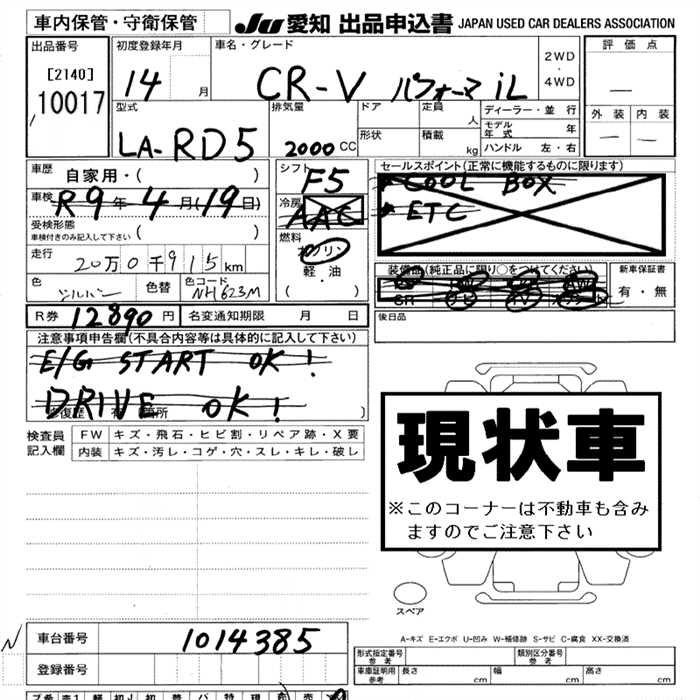 車内保管・守衛保管
JU 愛知 出品申込書 JAPAN USED CAR DEALERS ASSOCIATION
出品番号
[2140]
10017
初度登録年月
14 月
車名・グレード
CR-V パフォーマ iL
2WD
・
4WD
評価点
—
外装 内装
— —
型式
LA-RD5
排気量
2000 CC
ドア
形状
定員
人
積載
kg
ディーラー・並行
モデル年式 年
ハンドル 左・右
車歴
自家用・( )
車検
R9年4月(19日)
受検形態
車検付きのみ記入して下さい ( )
走行
20万0千915km
色
シルバー
色替
色コード
NH623M
シフト
F5
冷房
AAC
燃料
ガソリン
軽・油
( ・ )
セールスポイント(正常に機能するものに限ります)
COOL BOX
ETC
装備品(純正品に限り○をつけてください)
新車保証書
有・無
後日品
R券 12890円
名変通知期限 月 日
注意事項申告欄(不具合内容等は具体的に記入して下さい)
E/G START OK!
DRIVE OK!
検査員
記入欄
FW キズ・飛石・ヒビ割・リペア跡・X要
内装 キズ・汚レ・コゲ・穴・スレ・キレ・破レ
現状車
※このコーナーは不動車も含み
ますのでご注意下さい
スペア
A-キズ E-エクボ U-凹み W-補修跡 S-サビ C-腐食 XX-交換済
N
車台番号 1014385
登録番号
形式指定番号
参考
類別区分番号
参考
車庫証明用
参考
長さ cm
幅 cm
高さ cm